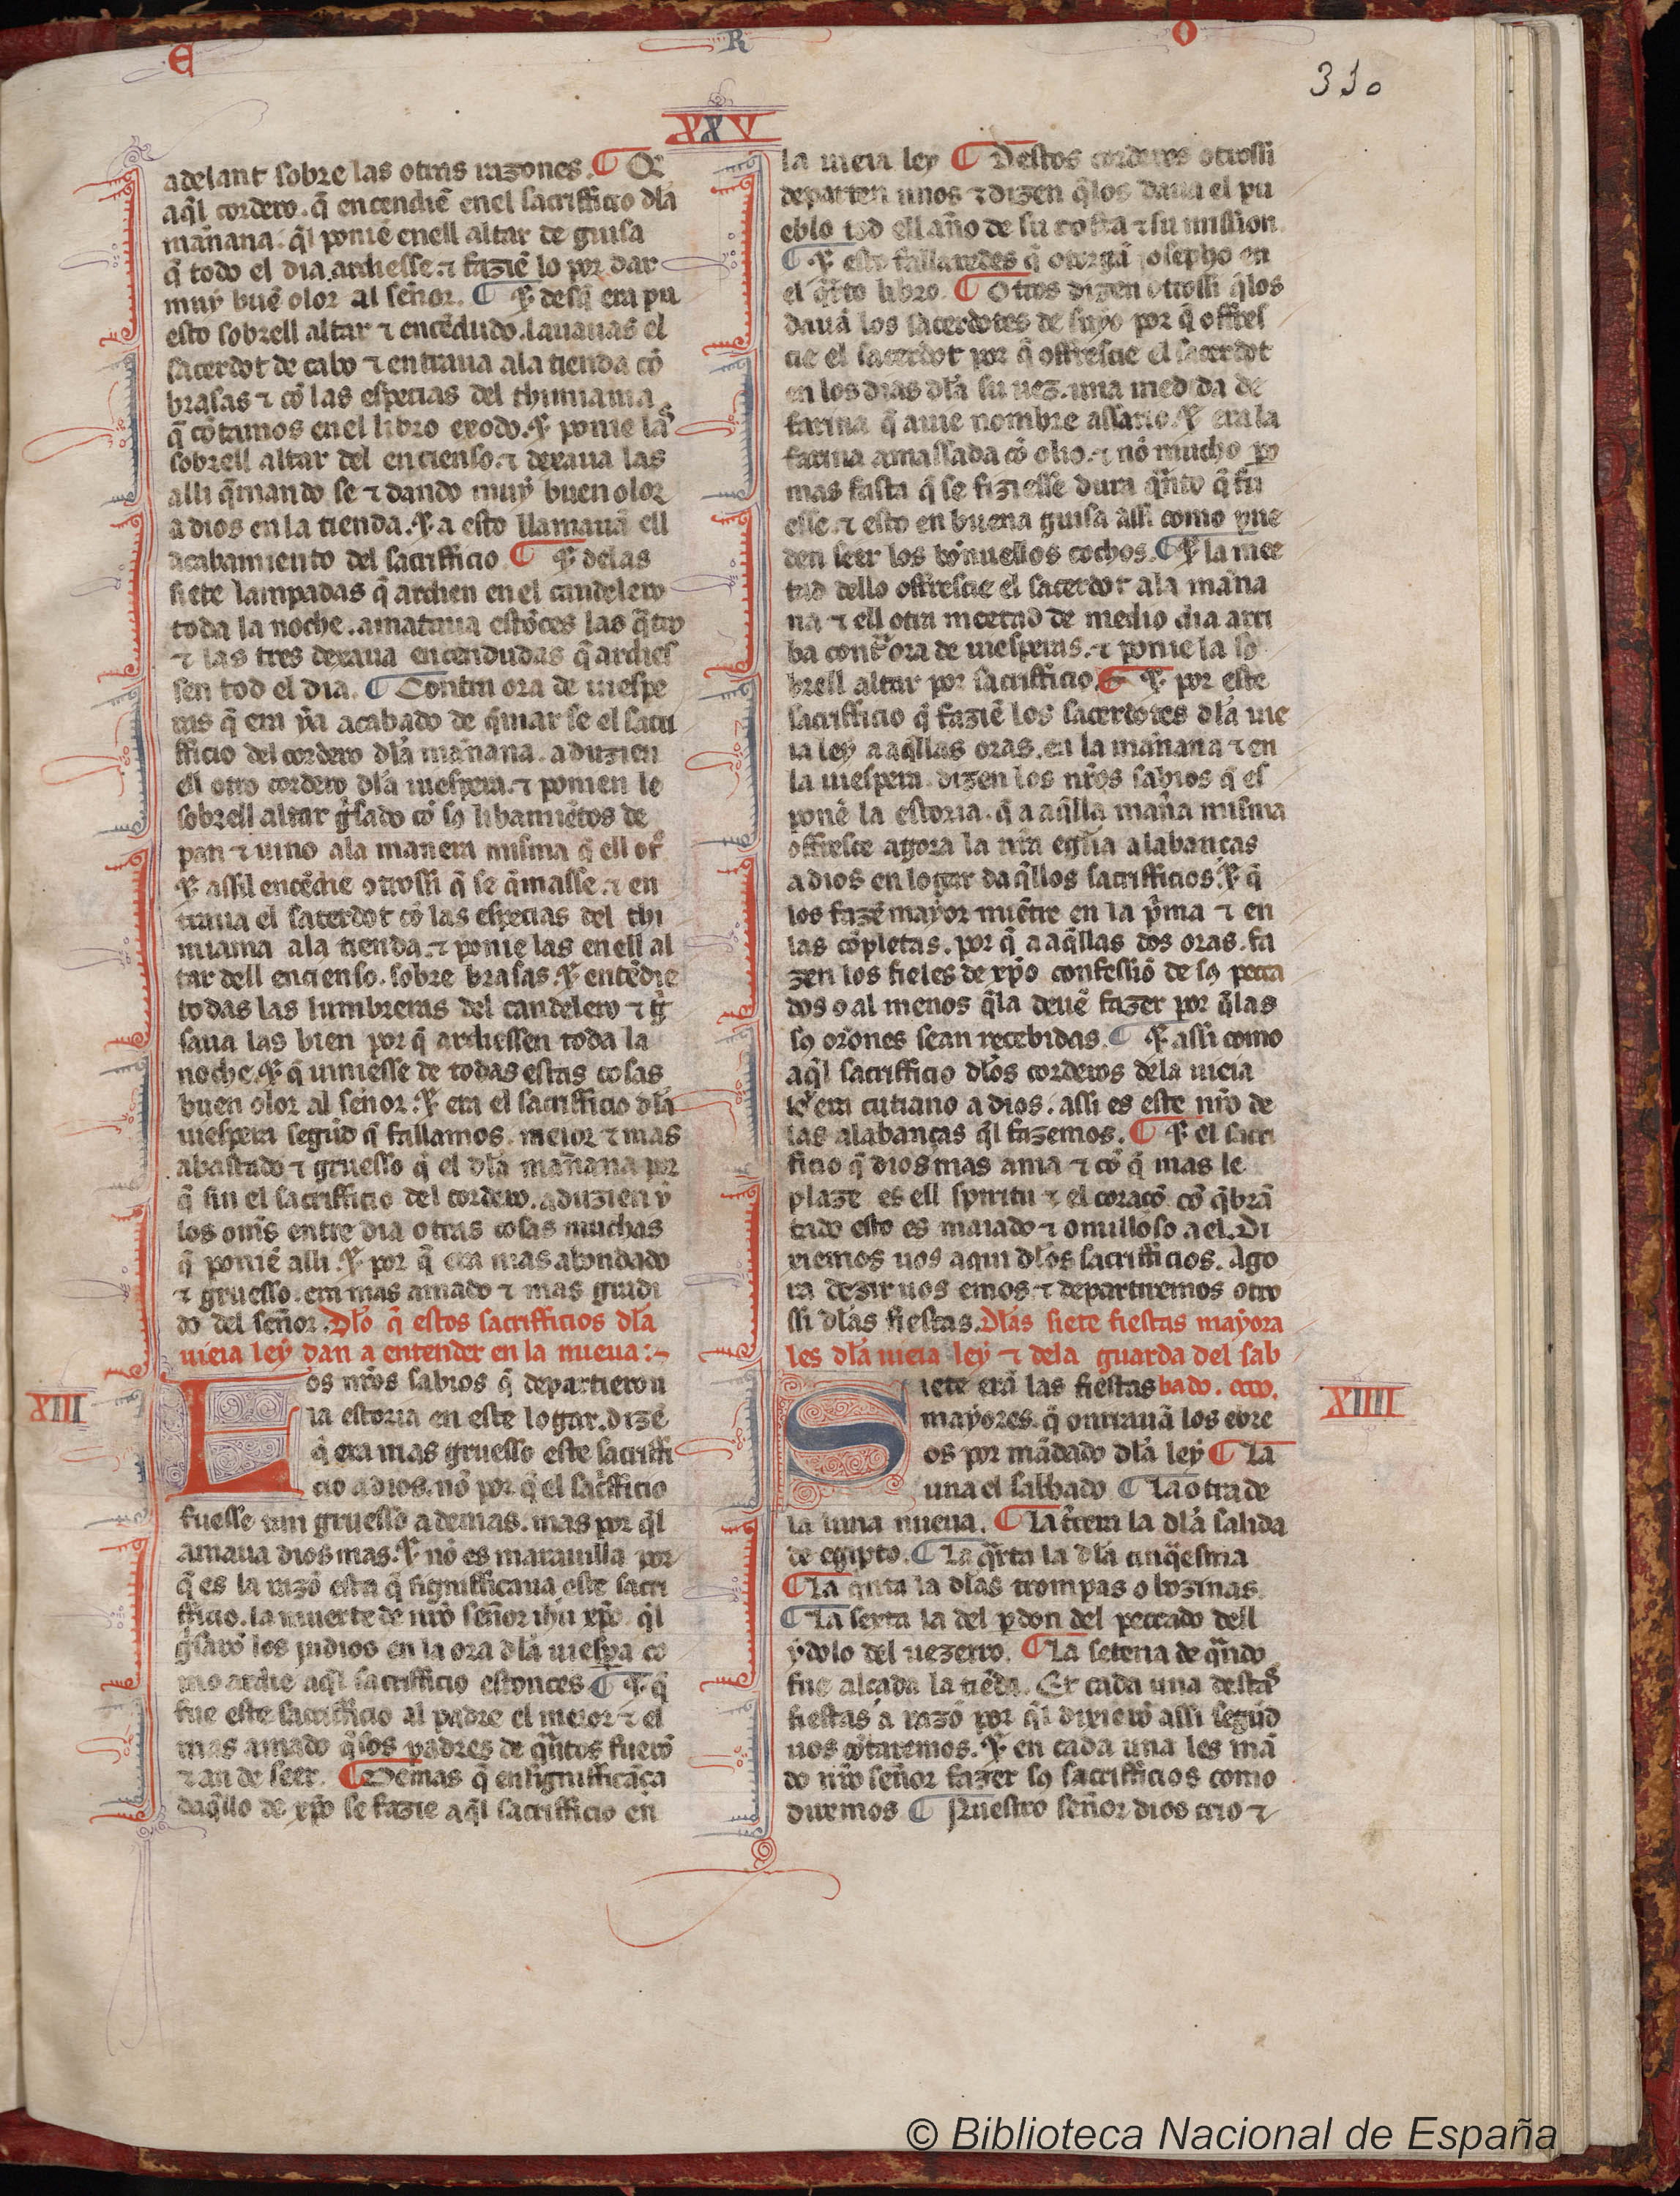 E R O
310
XXV
adelant sobre las otras razones. ¶ Et
aq̃l cordero. q̃ encendiẽ enel sacrifficio dla
mañana. q̃l poniẽ enell altar de guisa
q̃ todo el dia ardiesse. ⁊ faziẽ lo por dar
muy buẽ olor al señor. ¶ ⁊ desq̃ era pu
esto sobrell altar ⁊ encẽdudo. lauauas el
sacerdot de cabo ⁊ entraua ala tienda cõ
brasas ⁊ cõ las especias del thimiama
q̃ cõtamos enel libro exodo. ⁊ ponie las
sobrell altar del encienso. ⁊ dexaua las
alli q̃mando se ⁊ dando muy buen olor
a dios en la tienda. ⁊ a esto llamauã ell
acabamiento del sacrifficio. ¶ ⁊ delas
siete lampadas q̃ ardien en el candelero
toda la noche. amataua estõces las q̃tro
⁊ las tres dexaua encendudas q̃ ardies
sen tod el dia. ¶ Contra ora de uiespe
ras q̃ era ya acabado de q̃mar se el sacri
fficio del cordero dla mañana. aduzien
ell otro cordero dla uiespera. ⁊ ponien le
sobrell altar g̃sado cõ sos libamiẽtos de
pan ⁊ uino ala manera misma q̃ ell otro
⁊ assil encẽdie otrossi q̃ se q̃masse. ⁊ en
traua el sacerdot cõ las especias del thi
miama ala tienda. ⁊ ponie las enell al
tar dell encienso. sobre brasas. ⁊ encẽdie
todas las lumbreras del candelero ⁊ g̃
saua las bien por q̃ ardiessen toda la
noche. ⁊ q̃ uiniesse de todas estas cosas
buen olor al señor. ⁊ era el sacrifficio dla
uiespera segũd q̃ fallamos. meior ⁊ mas
abastado ⁊ gruesso q̃ el dla mañana por
q̃ sin el sacrifficio del cordero. aduzien y
los om̃s entre dia otras cosas muchas
q̃ poniẽ alli. ⁊ por q̃ era mas abondado
⁊ gruesso. era mas amado ⁊ mas gradi
do del señor. Dlo q̃ estos sacrifficios dla
uieia ley dan a entender en la nueua:-
XIII
Los nr̃os sabios q̃ departieron
la estoria en este logar. dizẽ
q̃ era mas gruesso este sacriffi
cio a dios. nõ por q̃ el sacrifficio
fuesse tan gruesso ademas. mas por q̃l
amaua dios mas. ⁊ nõ es marauilla por
q̃ es la razõ esta q̃ significaua este sacri
fficio. la muerte de nr̃o señor ihũ xp̃o. q̃l
g̃saron los iudios en la ora dla uiesp̃a co
mo ardie aq̃l sacrifficio estonces ¶ ⁊ q̃
fue este sacrifficio al padre el meior ⁊ el
mas amado q̃los padres de q̃ntos fuerõ
⁊ an de seer. ¶ Demas q̃ en significãça
daq̃llo de xp̃o se fazie aq̃l sacrifficio en
la uieia ley ¶ Destos corderos otrossi
departen unos ⁊ dizen q̃los daua el pu
eblo tod ell año de su costa ⁊ su mission.
¶ ⁊ esto fallaredes q̃ otorgã josepho en
el q̃rto libro. ¶ Otros dizen otrossi q̃los
dauã los sacerdotes de suyo por q̃ offres
cie el sacerdot por q̃ offrescie el sacerdot
en los dias dla su uez. una medida de
farina q̃ auie nombre assario. ⁊ era la
farina amassada cõ olio. ⁊ nõ mucho po
mas fasta q̃ se fiziesse dura q̃nto q̃ fu
esse. ⁊ esto en buena guisa assi como pue
den seer los bõnuellos cochos. ¶ ⁊ la mee
tad dello offrescie el sacerdot ala maña
na ⁊ ell otra meetad de medio dia arri
ba contra ora de uiesperas. ⁊ ponie la so
brell altar por sacrifficio. ¶ ⁊ por este
sacrifficio q̃ faziẽ los sacerdotes dla uie
ia ley a aq̃llas oras. en la mañana ⁊ en
la uiespera. dizen los nr̃os sabios q̃ es
ponẽ la estoria. q̃ a aq̃lla maña misma
offresce agora la nr̃a egl̃ia alabanças
a dios en logar daq̃llos sacrifficios. ⁊ q̃
los fazẽ mayor miẽtre en la p̃ma ⁊ en
las cõpletas. por q̃ a aq̃llas dos oras. fa
zen los fieles de xp̃o confessiõ de sos pecca
dos o al menos q̃la deuẽ fazer por q̃las
sos or̃ones sean recebidas. ¶ ⁊ assi como
aq̃l sacrifficio dlos corderos dela uieia
ley era cutiano a dios. assi es este nr̃o de
las alabanças q̃l fazemos. ¶ ⁊ el sacri
ficio q̃ dios mas ama ⁊ cõ q̃ mas le
plaze es ell spiritu ⁊ el coraçõ cõ q̃brã
tado esto es maiado ⁊ omilloso a el. Di
xiemos uos aqui dlos sacrifficios. Ago
ra dezir uos emos. ⁊ departiremos otro
ssi dlas fiestas. Dlas siete fiestas mayora
les dla uieia ley ⁊ dela guarda del sab
bado. ccco.
XIIII
Siete erã las fiestas
mayores. q̃ onrrauã los ebre
os por mãdado dla ley ¶ La
una el sabbado ¶ La otra de
la luna nueua. ¶ La t̃cera la dla salida
de egipto. ¶ La q̃rta la dla cinq̃esma
¶ La quinta la dlas trompas o bozinas.
¶ La sexta la del p̱don del peccado dell
ydolo del uezerro. ¶ La setena de q̃ndo
fue alçada la tiẽda. Et cada una destas
fiestas a razõ por q̃l dixierõ assi segũd
uos cõtaremos. ⁊ en cada una les mã
do nr̃o señor fazer sos sacrifficios como
dixemos ¶ Nuestro señor dios crio ⁊
© Biblioteca Nacional de España